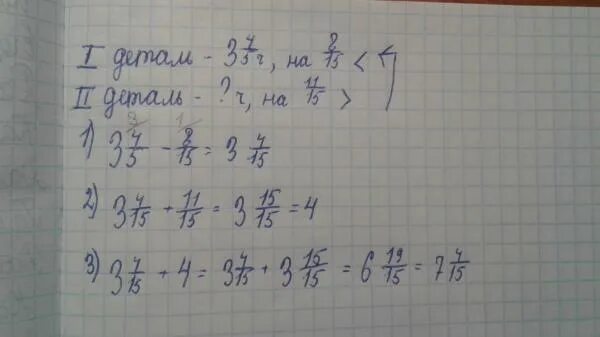 I деталь - 3 4/5 ч, на 8/15 <
II деталь - ? ч, на 11/15 >
1) 3 4/5 - 8/15 = 3 4/15
2) 3 4/15 + 11/15 = 3 15/15 = 4
3) 3 4/15 + 4 = 3 4/15 + 3 15/15 = 6 19/15 = 7 4/15